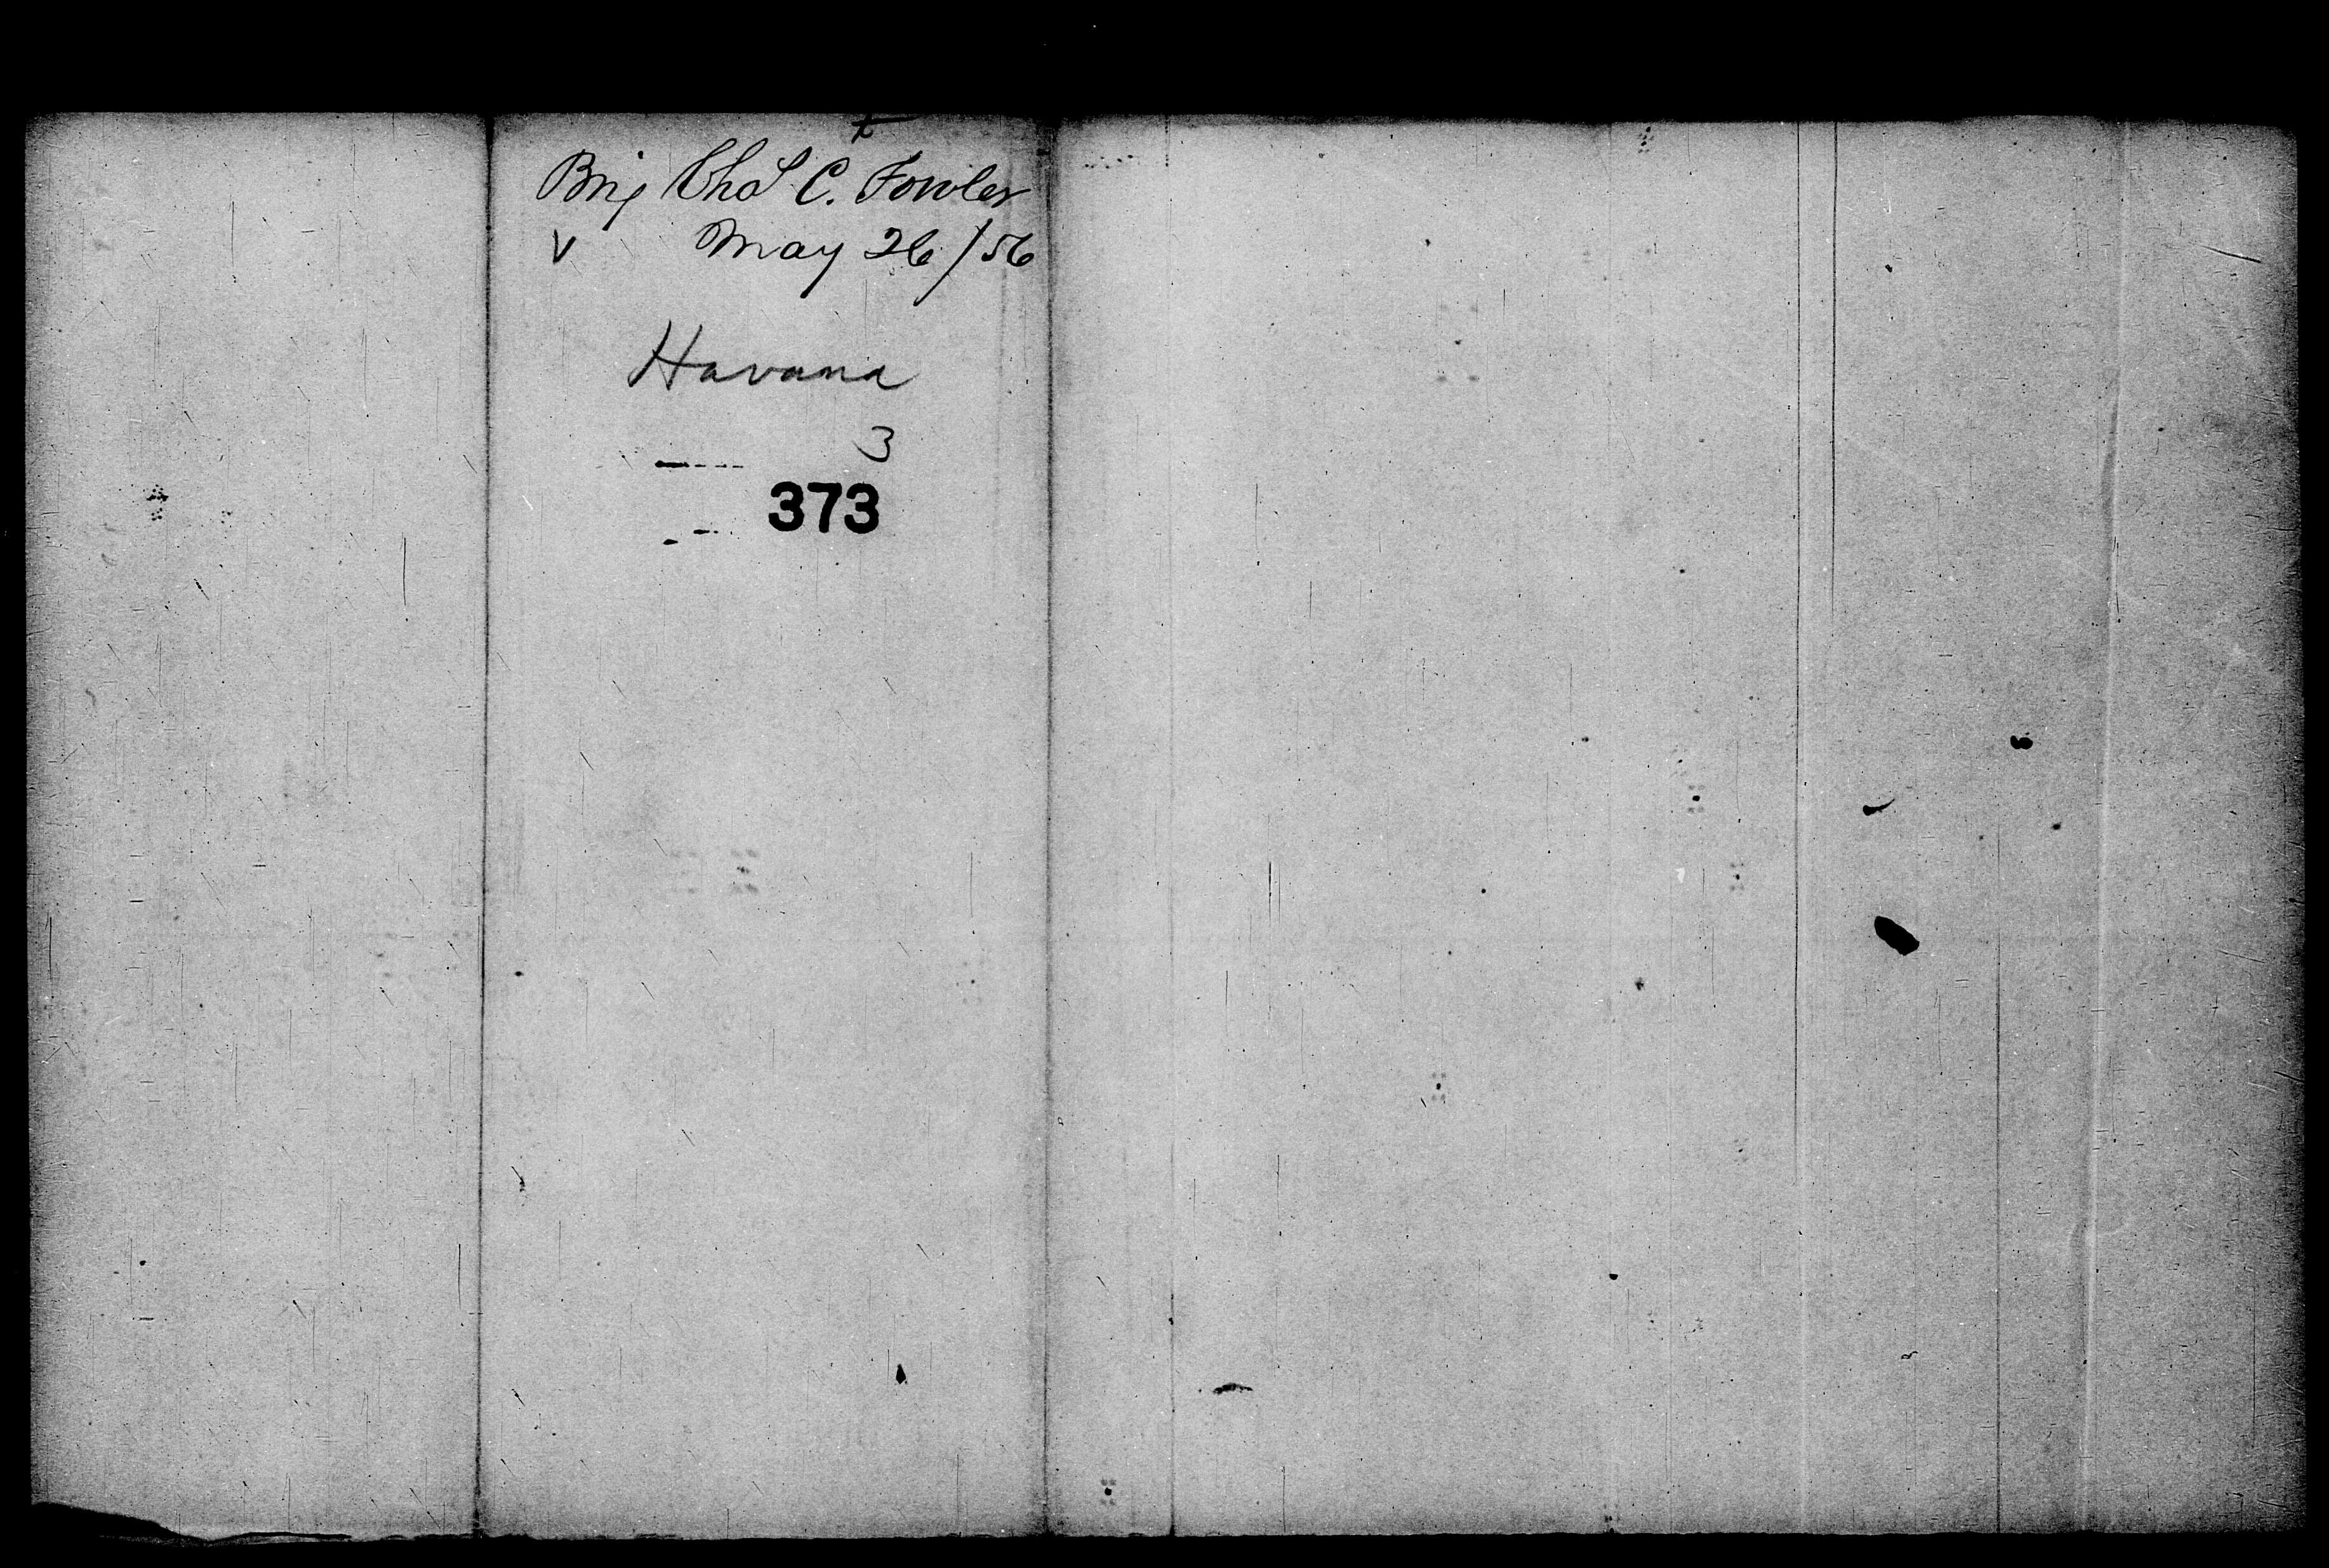 Brig Chas C. Fowler
V May 26/56
Havana
3
373